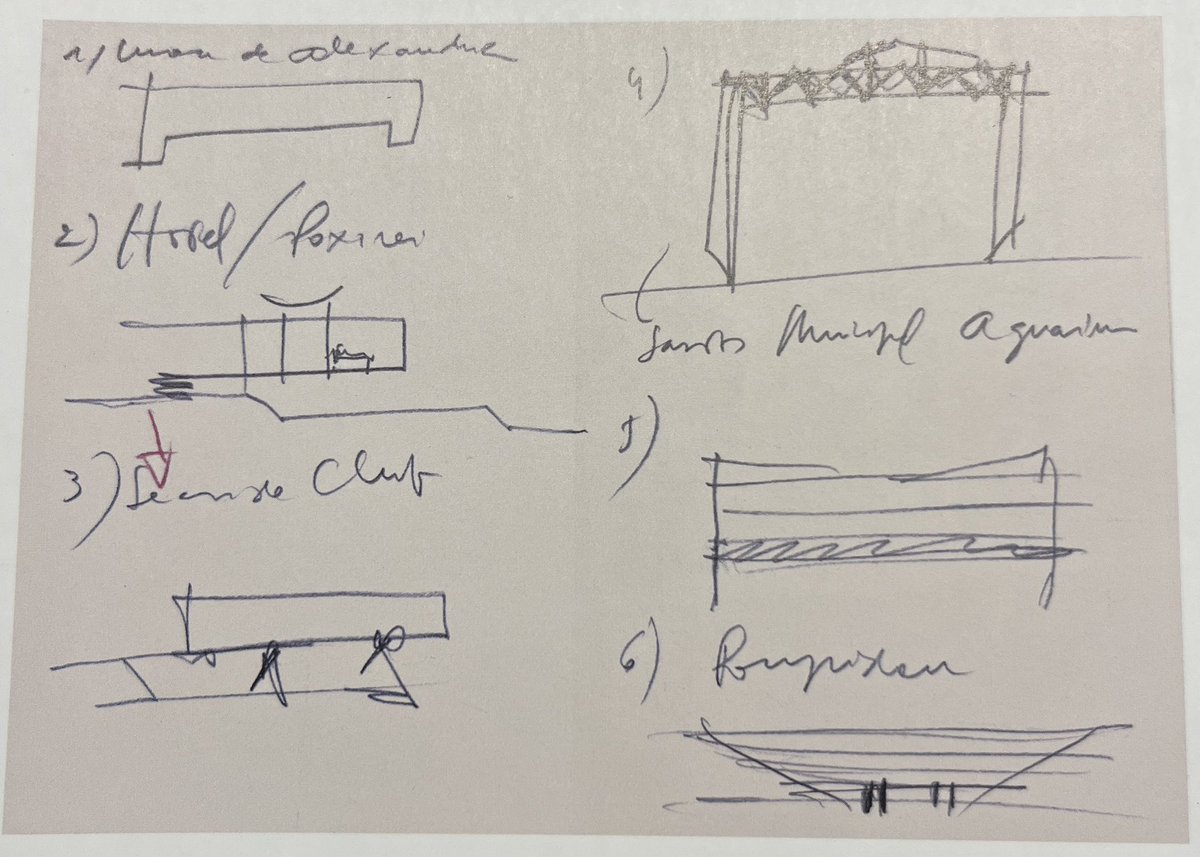 1) Museu de Alexandria
2) Hotel /
3) Seaside Club
4)
Santos Municipal Aquarium
5)
6) Pompidou